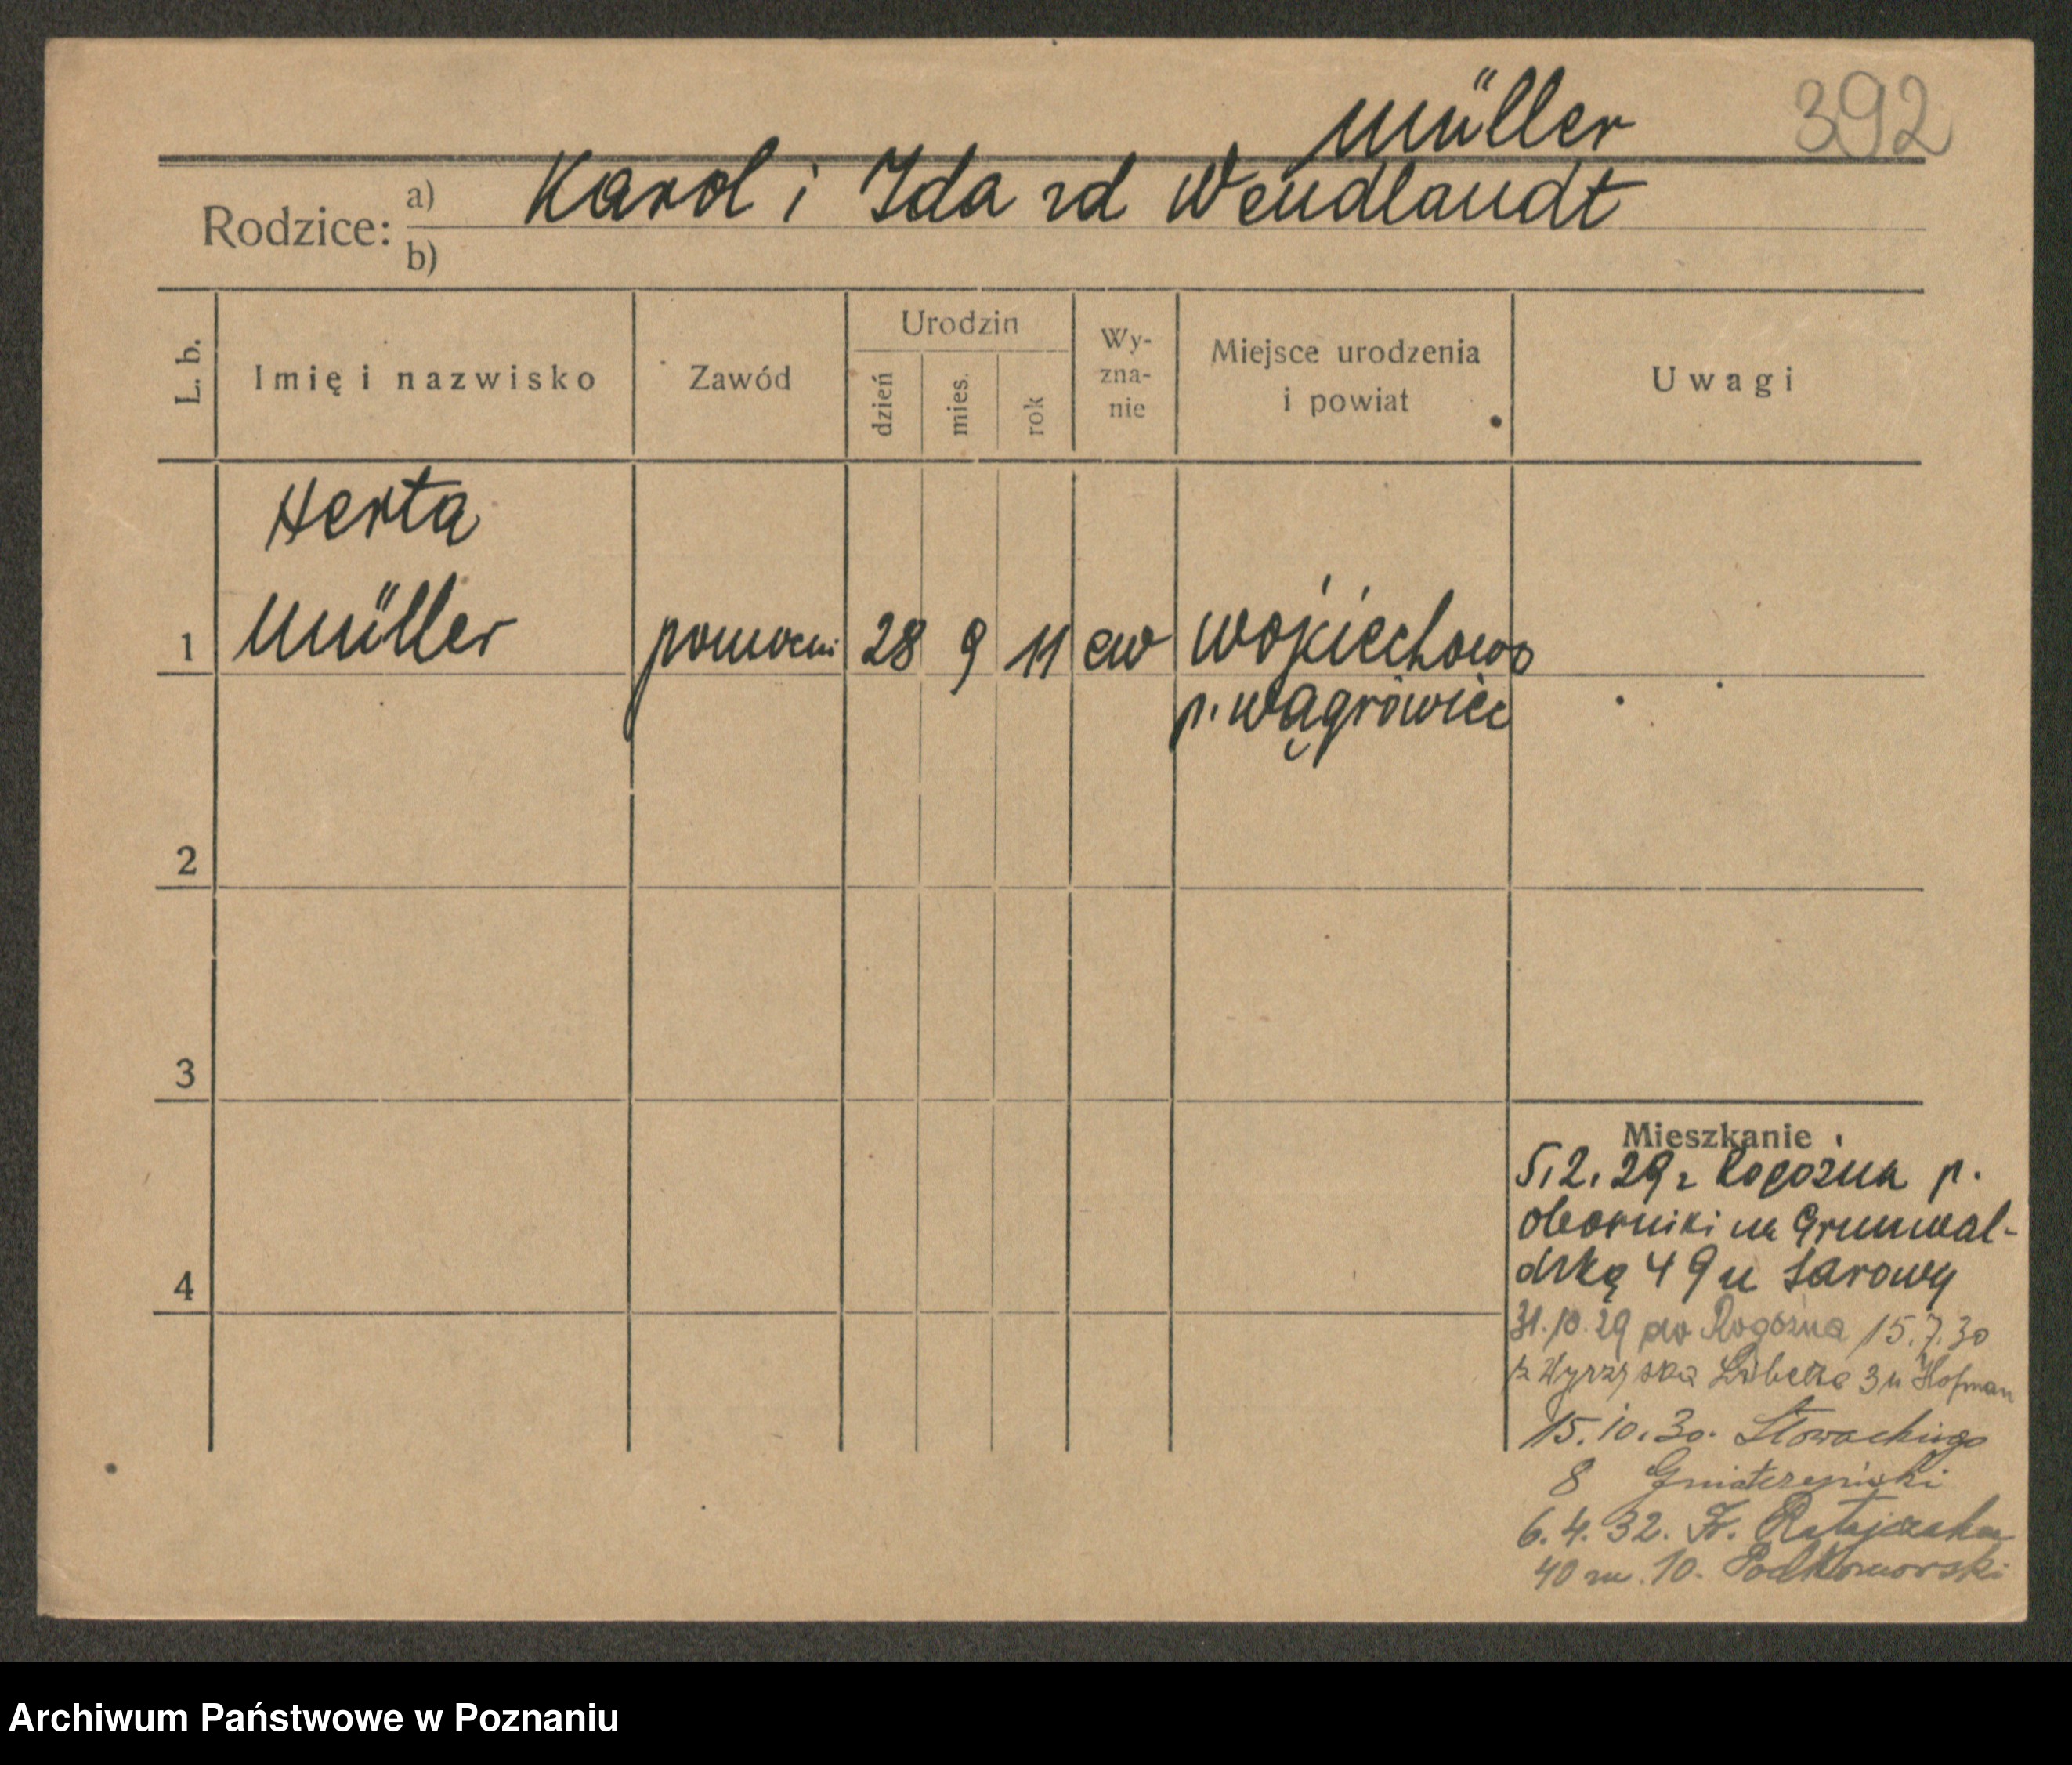 392
Müller
Rodzice: a) Karol i Ida zd Wendlandt
b)
L. b.
Imię i nazwisko
Zawód
Urodzin
dzień
mies.
rok
Wy-
zna-
nie
Miejsce urodzenia
i powiat
Uwagi
Herta
1 Müller pomocni 28 9 11 ew Wojciechowo
p. Wągrówiec
2
3
4
Mieszkanie
5.2.29 z Rogozna p.
Oborniki na Grunwal-
dzką 49 u
31.10.29 do Rogozna 15.7.30
z Wyrzyska 3 u Hofman
15.10.30. Słowackiego
8
6.4.32. Fr. Ratajczaka
40 m. 10. Podkomorski
Archiwum Państwowe w Poznaniu